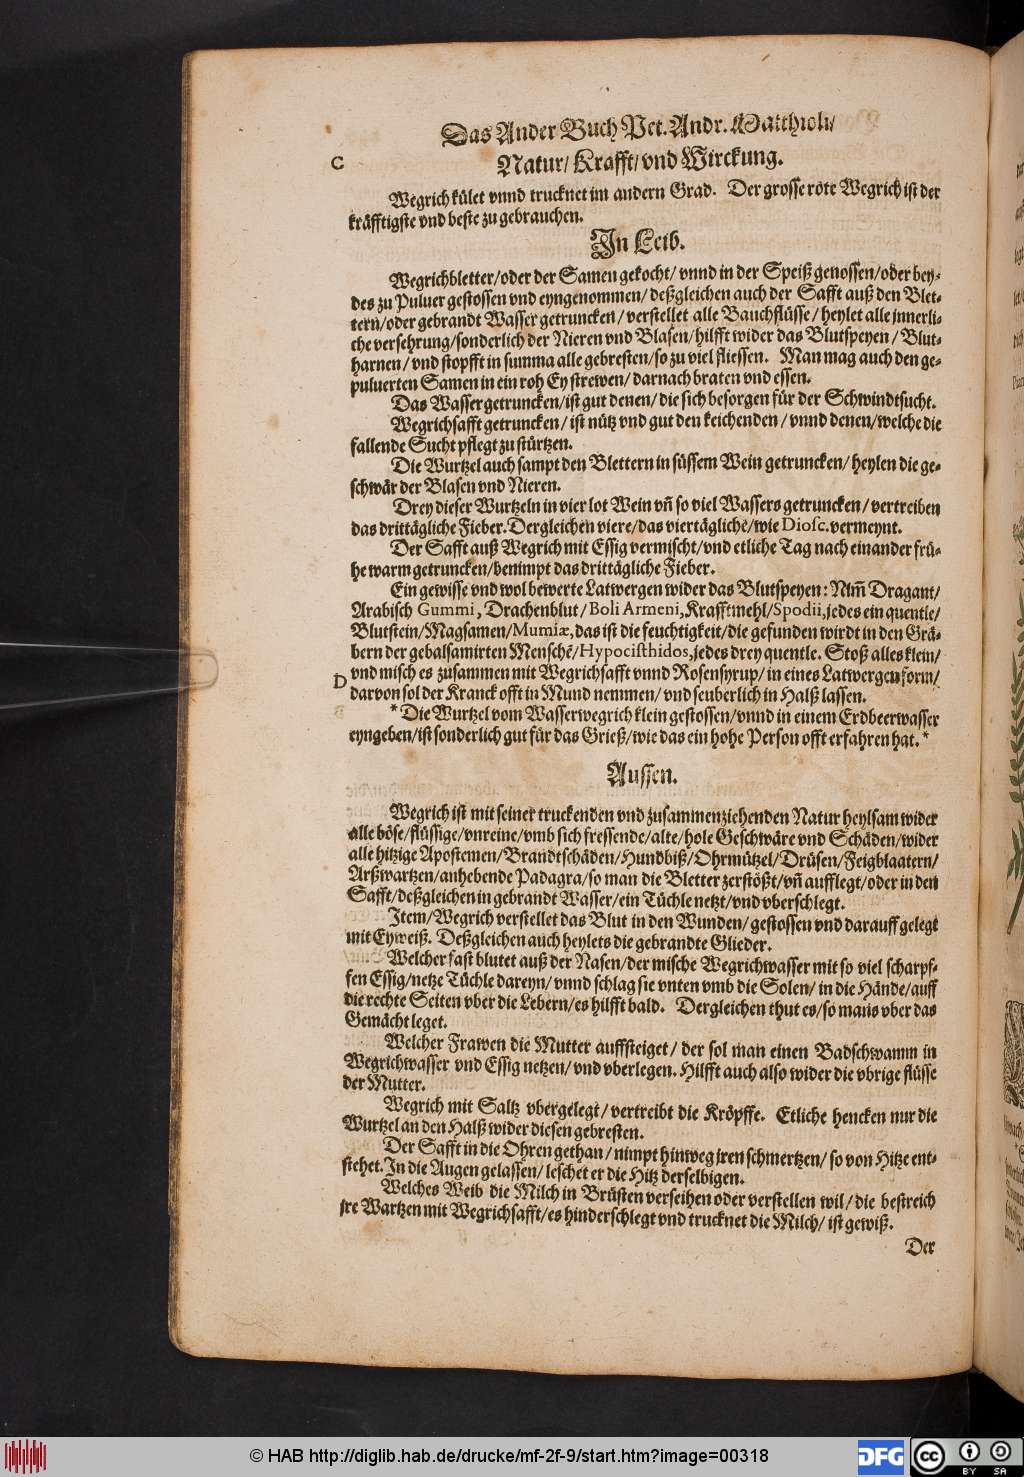 Das Ander Buch Pet. Andr. Matthioli/
C
Natur/ Krafft/ vnd Wirckung.
Wegrich kület vnnd trucknet im andern Grad. Der grosse rote Wegrich ist der
kräfftigste vnd beste zu gebrauchen.
In Leib.
Wegrichbletter/oder der Samen gekocht/ vnnd in der Speiß genossen/oder bey-
des zu Puluer gestossen vnd eyngenommen/ deßgleichen auch der Safft auß den Blet-
tern/oder gebrandt Wasser getruncken/ verstellet alle Bauchflüsse/ heylet alle jnnerli-
che versehrung/sonderlich der Nieren vnd Blasen/hilfft wider das Blutspeyen/ Blut-
harnen/ vnd stopfft in summa alle gebresten/so zu viel fliessen. Man mag auch den ge-
puluerten Samen in ein roh Ey strewen/ darnach braten vnd essen.
Das Wasser getruncken/ist gut denen/ die sich besorgen für der Schwindtsucht.
Wegrichsafft getruncken/ ist nütz vnd gut den keichenden/ vnnd denen/welche die
fallende Sucht pflegt zu stürtzen.
Die Wurtzel auch sampt den Blettern in süssem Wein getruncken/ heylen die ge-
schwär der Blasen vnd Nieren.
Drey dieser Wurtzeln in vier lot Wein vñ so viel Wassers getruncken/ vertreiben
das drittägliche Fieber. Dergleichen viere/das viertäglichē/wie Diosc. vermeynt.
Der Safft auß Wegrich mit Essig vermischt/vnd etliche Tag nach einander frü-
he warm getruncken/benimpt das drittägliche Fieber.
Ein gewisse vnd wol bewerte Latwergen wider das Blutspeyen: Nim̃ Dragant/
Arabisch Gummi, Drachenblut/ Boli Armeni, Krafftmehl/Spodii, jedes ein quentle/
Blutstein/Magsamen/Mumiæ, das ist die feuchtigkeit/die gefunden wirdt in den Grä-
bern der gebalsamirten Menschē/Hypocisthidos, jedes drey quentle. Stoß alles klein/
vnd misch es zusammen mit Wegrichsafft vnnd Rosensyrup/ in eines Latwergen form/
D
darvon sol der Kranck offt in Mund nemmen/ vnd seuberlich in Halß lassen.
* Die Wurtzel vom Wasserwegrich klein gestossen/vnnd in einem Erdbeerwasser
eyngeben/ist sonderlich gut für das Grieß/wie das ein hohe Person offt erfahren hat. *
Aussen.
Wegrich ist mit seiner truckenden vnd zusammenziehenden Natur heylsam wider
alle böse/flüssige/vnreine/vmb sich fressende/alte/hole Geschwäre vnd Schäden/wider
alle hitzige Apostemen/Brandtschäden/Hundbiß/Ohrmützel/Drüsen/Feigblaatern/
Arßwartzen/anhebende Padagra/so man die Bletter zerstößt/vñ aufflegt/oder in den
Safft/deßgleichen in gebrandt Wasser/ein Tüchle netzt/vnd vberschlegt.
Item/Wegrich verstellet das Blut in den Wunden/ gestossen vnd darauff gelegt
mit Eyweiß. Deßgleichen auch heylets die gebrandte Glieder.
Welcher fast blutet auß der Nasen/der mische Wegrichwasser mit so viel scharpf-
fen Essig/netze Tüchle dareyn/ vnnd schlag sie vnten vmb die Solen/ in die Hände/auff
die rechte Seiten vber die Lebern/es hilfft bald. Dergleichen thut es/so mans vber das
Gemächt leget.
Welcher Frawen die Mutter auffsteiget/ der sol man einen Badschwamm in
Wegrichwasser vnd Essig netzen/ vnd vberlegen. Hilfft auch also wider die vbrige flüsse
der Mutter.
Wegrich mit Saltz vbergelegt/ vertreibt die Kröpffe. Etliche hencken nur die
Wurtzel an den Halß wider diesen gebresten.
Der Safft in die Ohren gethan/ nimpt hinweg jren schmertzen/ so von Hitze ent-
stehet. In die Augen gelassen/ leschet er die Hitz derselbigen.
Welches Weib die Milch in Brüsten verseihen oder verstellen wil/ die bestreich
jre Wartzen mit Wegrichsafft/es hinderschlegt vnd trucknet die Milch/ ist gewiß.
Der
© HAB http://diglib.hab.de/drucke/mf-2f-9/start.htm?image=00318
DFG
cc BY SA